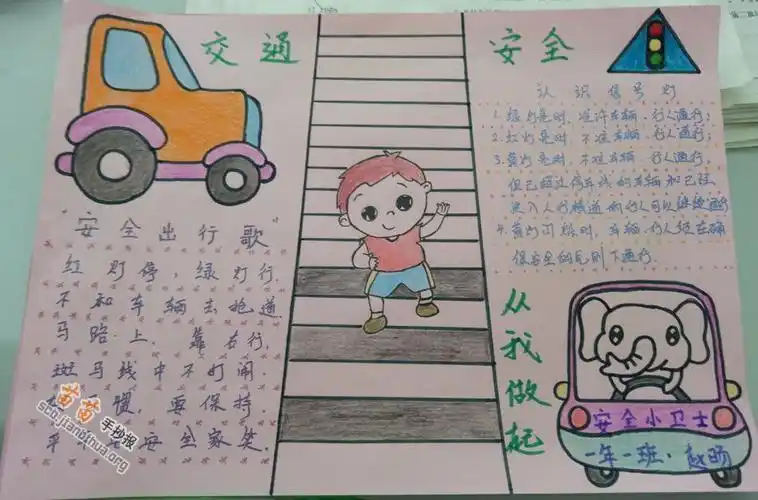 交通
安全
"安全出行歌"
红灯停,绿灯行.
不和车辆去抢道.
马路上,靠右行,
斑马线中不打闹.
惯,要保持.
平 安全家笑.
苗苗手抄报
scb.jianbihua.org
认识信号灯
1.绿灯亮时,准许车辆、行人通行;
2.红灯亮时,不准车辆、行人通行;
3.黄灯亮时,不准车辆、行人通行,
但已超过停车线的车辆和已经
进入人行横道的行人可以继续通行
4.黄灯闪烁时,车辆、行人须在确
保安全的原则下通行.
从我做起
安全小卫士
一年一班·赵旸